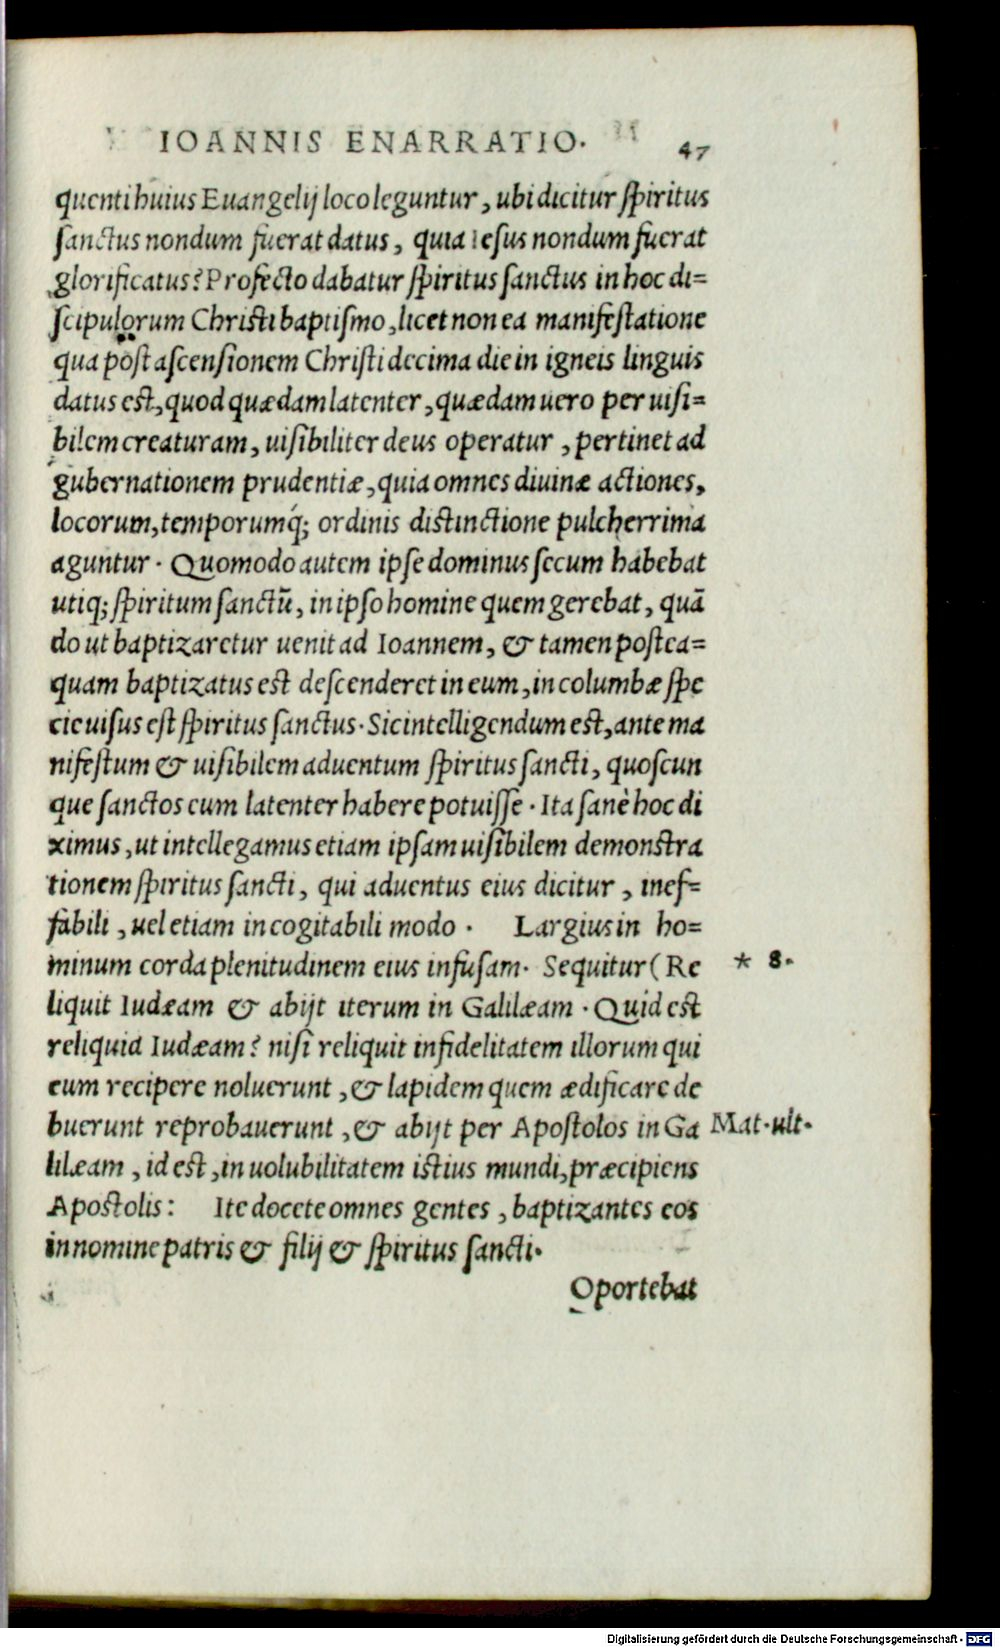 IOANNIS ENARRATIO. 47
quenti huius Euangelij loco leguntur, ubi dicitur spiritus
sanctus nondum fuerat datus, quia Iesus nondum fuerat
glorificatus? Profecto dabatur spiritus sanctus in hoc di=
scipulorum Christi baptismo, licet non ea manifestatione
qua post ascensionem Christi decima die in igneis linguis
datus est, quod quædam latenter, quædam uero per uisi=
bilem creaturam, uisibiliter deus operatur, pertinet ad
gubernationem prudentiæ, quia omnes diuinæ actiones,
locorum, temporumq́; ordinis distinctione pulcherrima
aguntur. Quomodo autem ipse dominus secum habebat
utiq; spiritum sanctū, in ipso homine quem gerebat, quā
do ut baptizaretur uenit ad Ioannem, & tamen postea=
quam baptizatus est descenderet in eum, in columbæ spe
cie uisus est spiritus sanctus. Sic intelligendum est, ante ma
nifestum & uisibilem aduentum spiritus sancti, quoscun
que sanctos eum latenter habere potuisse. Ita sanè hoc di
ximus, ut intellegamus etiam ipsam uisibilem demonstra
tionem spiritus sancti, qui aduentus eius dicitur, inef=
fabili, uel etiam incogitabili modo. Largius in ho=
minum corda plenitudinem eius infusam. Sequitur (Re * 8.
liquit Iudæam & abijt iterum in Galilæam. Quid est
reliquid Iudæam? nisi reliquit infidelitatem illorum qui
eum recipere noluerunt, & lapidem quem ædificare de
buerunt reprobauerunt, & abijt per Apostolos in Ga Mat. ult.
lilæam, id est, in uolubilitatem istius mundi, præcipiens
Apostolis: Ite docete omnes gentes, baptizantes eos
in nomine patris & filij & spiritus sancti.
Oportebat
Digitalisierung gefördert durch die Deutsche Forschungsgemeinschaft - DFG